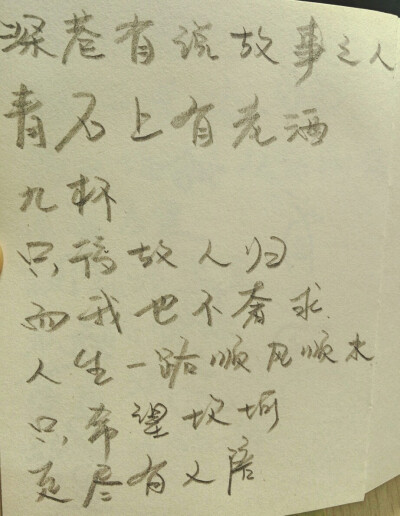 深巷有说故事之人
青石上有老酒
九杯
只待故人归
而我也不奢求
人生一路顺风顺水
只希望坎坷
更尽有人陪